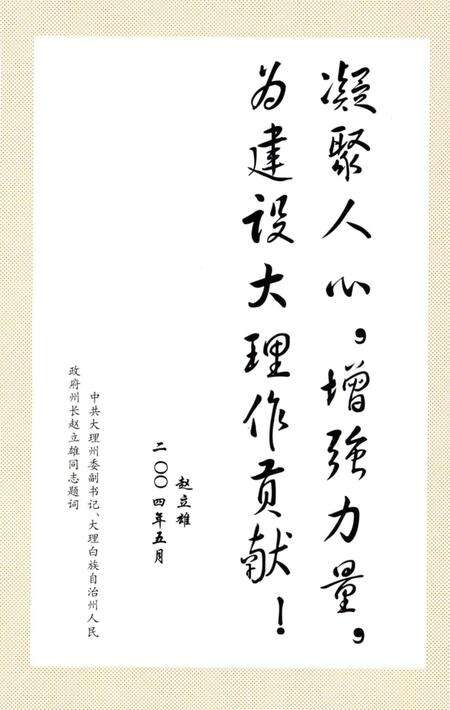 凝聚人心，增强力量，
为建设大理作贡献！
赵立雄
二〇〇四年五月
中共大理州委副书记、大理白族自治州人民
政府州长赵立雄同志题词